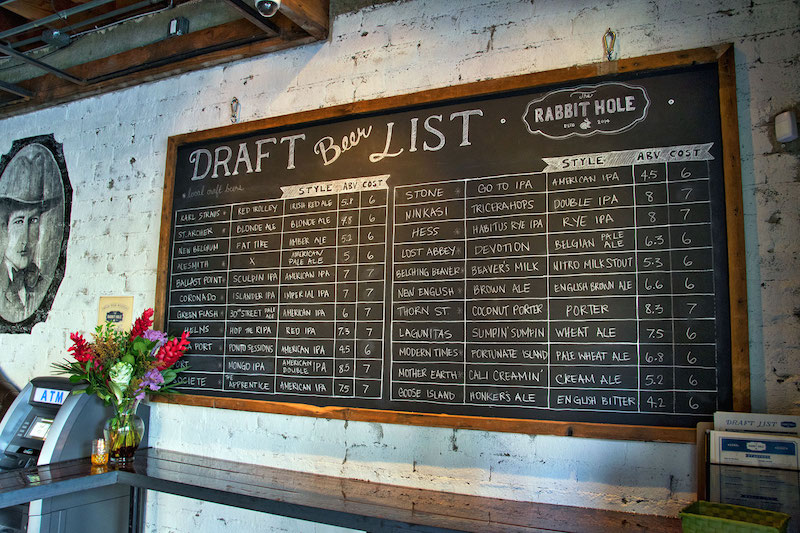 The
RABBIT HOLE
ESTD 2014
DRAFT Beer LIST
* local craft beers
STYLE ABV COST
KARL STRAUS * RED TROLLEY IRISH RED ALE 5.8 6
ST. ARCHER * BLONDE ALE BLONDE ALE 4.8 6
NEW BELGIUM FAT TIRE AMBER ALE 5.2 6
ALESMITH * X AMERICAN PALE ALE 5 6
BALLAST POINT * SCULPIN IPA AMERICAN IPA 7 7
CORONADO * ISLANDER IPA IMPERIAL IPA 7 7
GREEN FLASH * 30TH STREET PALE ALE AMERICAN IPA 6 7
HELMS HOP THE RIPA RED IPA 7.5 7
PORT PONTO SESSIONS AMERICAN IPA 4.5 6
PORT MONGO IPA AMERICAN DOUBLE 8.5 7
SOCIETE * THE APPRENTICE AMERICAN IPA 7.5 7
STYLE ABV COST
STONE * GO TO IPA AMERICAN IPA 4.5 6
NINKASI TRICERAHOPS DOUBLE IPA 8 7
HESS * HABITUS RYE IPA RYE IPA 8 7
LOST ABBEY * DEVOTION BELGIAN PALE ALE 6.3 6
BELCHING BEAVER * BEAVER'S MILK NITRO MILK STOUT 5.3 6
NEW ENGLISH * BROWN ALE ENGLISH BROWN ALE 6.6 6
THORN ST * COCONUT PORTER PORTER 8.3 7
LAGUNITAS SUMPIN' SUMPIN WHEAT ALE 7.5 6
MODERN TIMES * FORTUNATE ISLAND PALE WHEAT ALE 6.8 6
MOTHER EARTH * CALI CREAMIN' CREAM ALE 5.2 6
GOOSE ISLAND HONKER'S ALE ENGLISH BITTER 4.2 6
ATM
DRAFT LIST